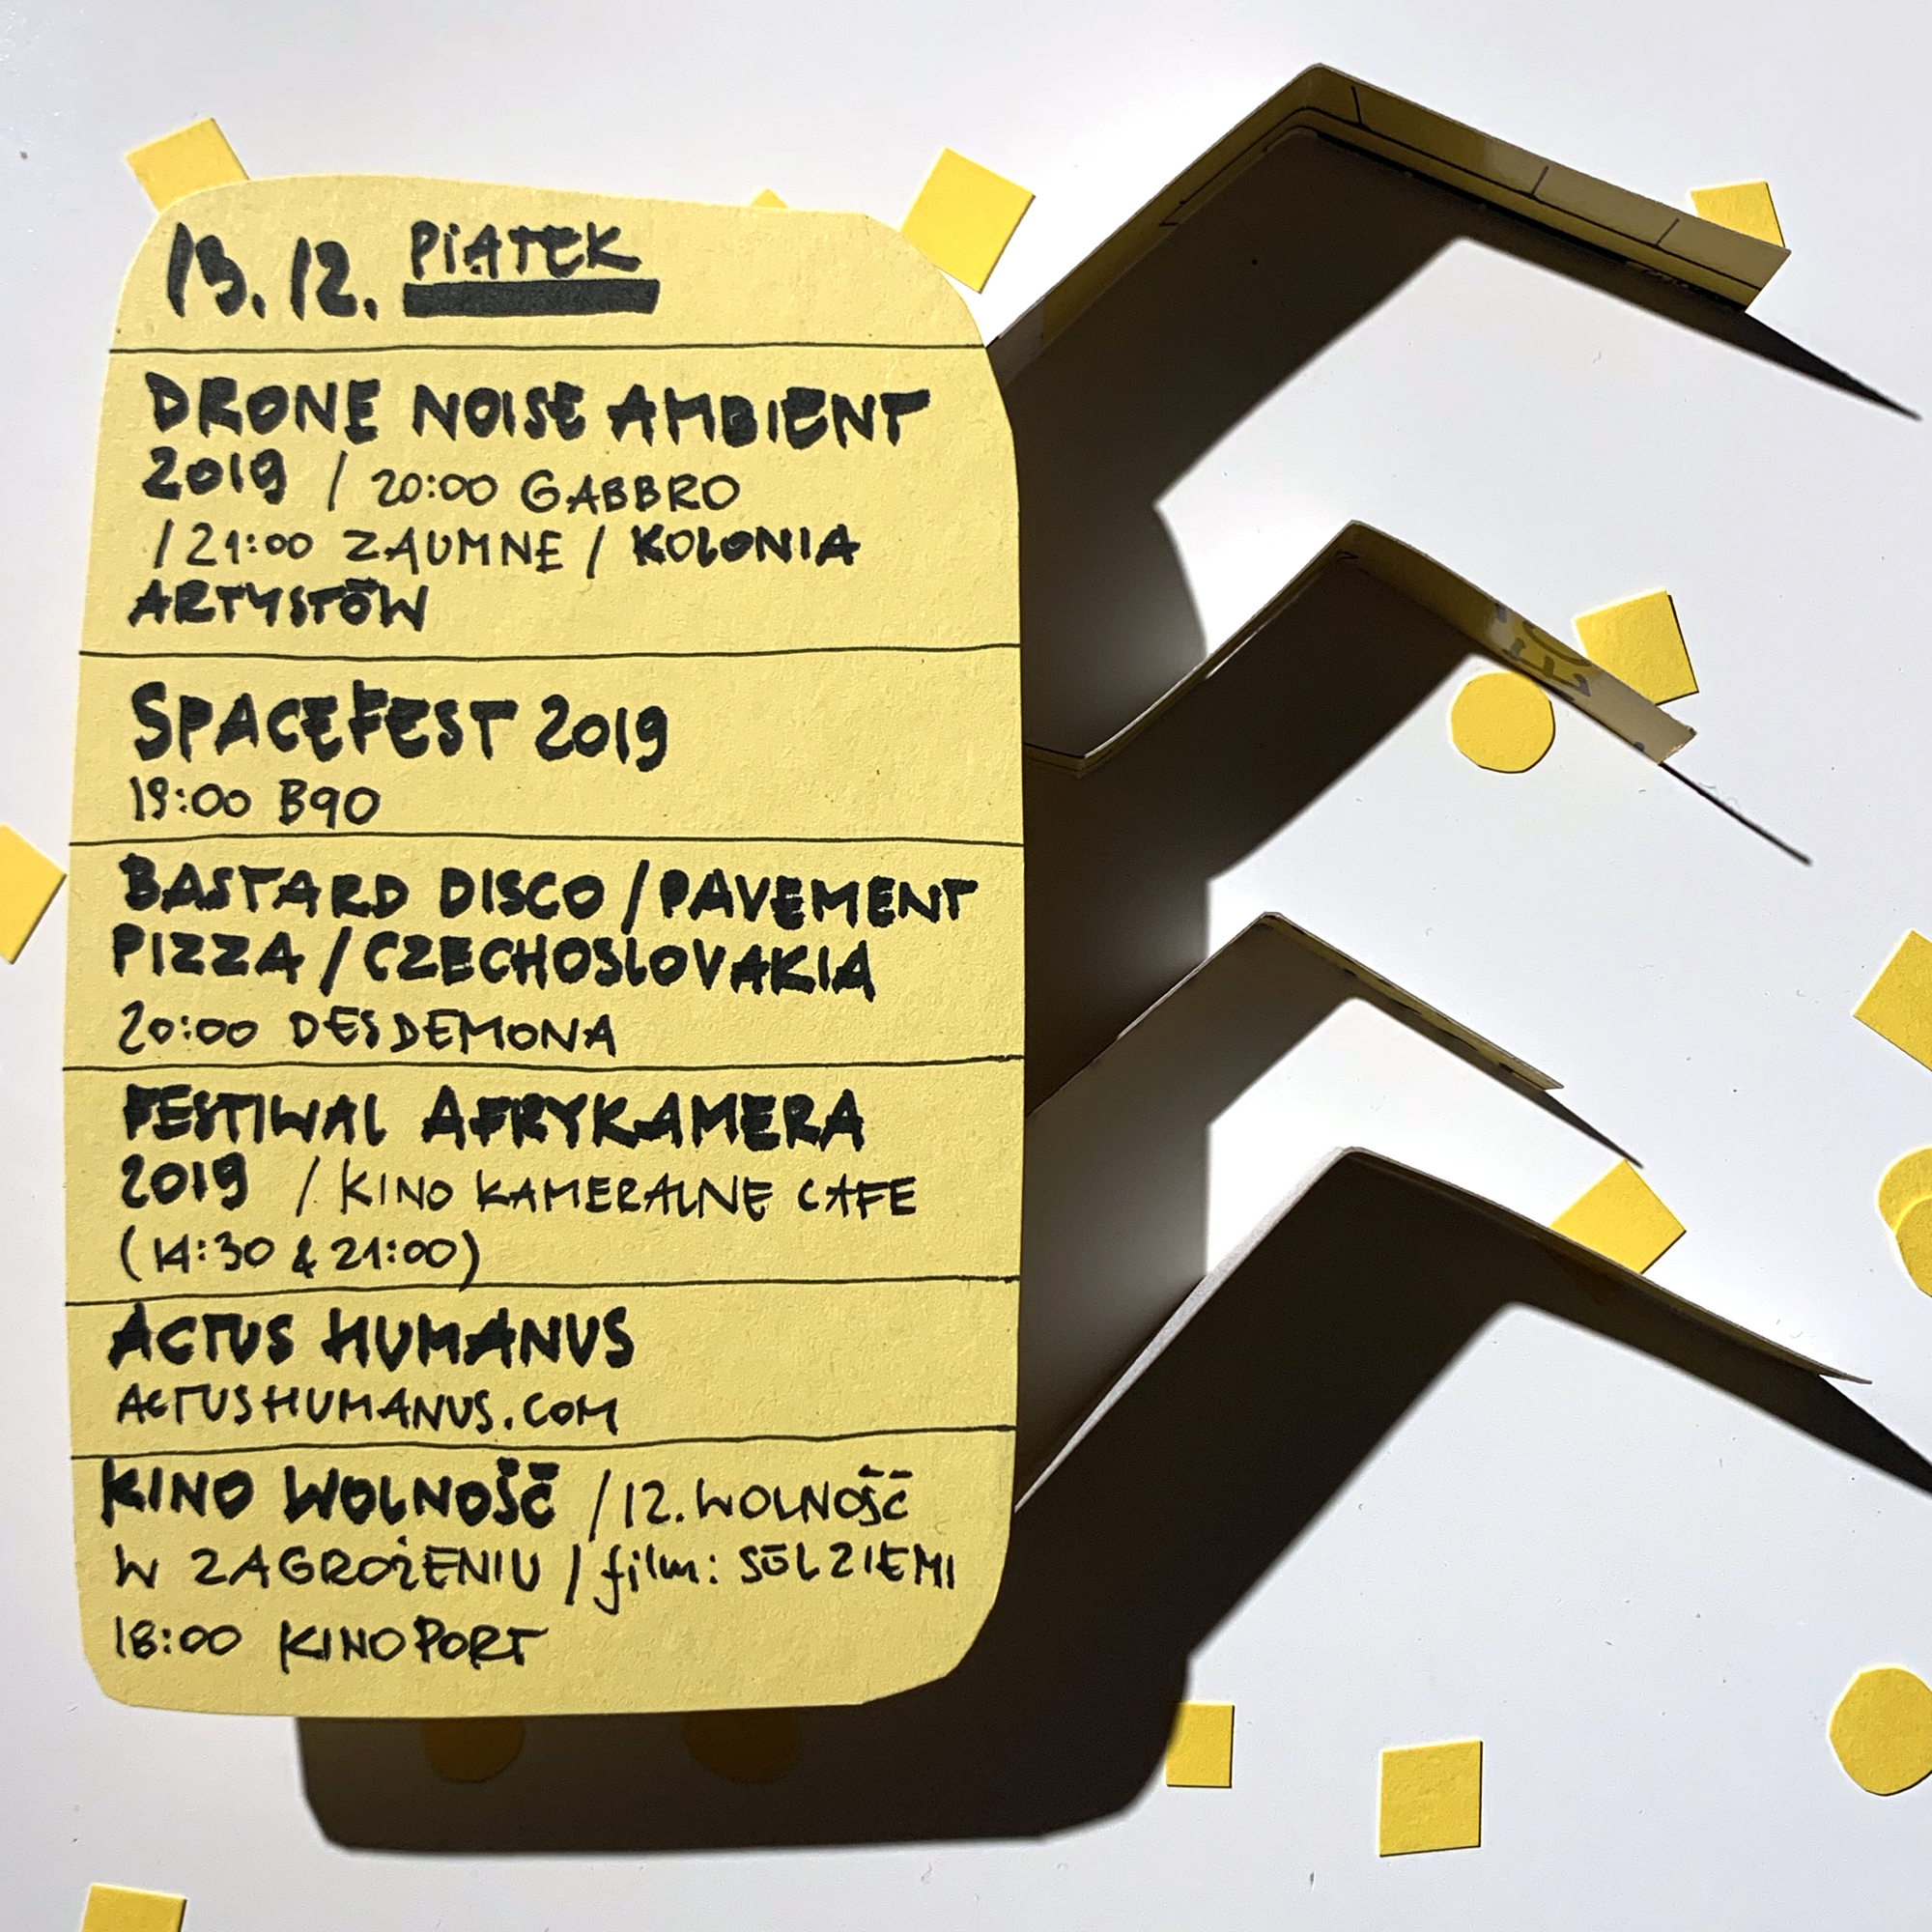 13.12. PIĄTEK
DRONE NOISE AMBIENT
2019 / 20:00 GABBRO
/ 21:00 ZAUMNE / KOLONIA
ARTYSTÓW
SPACEFEST 2019
19:00 B90
BASTARD DISCO / PAVEMENT
PIZZA / CZECHOSLOVAKIA
20:00 DESDEMONA
FESTIWAL AFRYKAMERA
2019 / KINO KAMERALNE CAFE
(14:30 & 21:00)
ACTUS HUMANUS
ACTUSHUMANUS.COM
KINO WOLNOŚĆ / 12. WOLNOŚĆ
W ZAGROŻENIU / film: SÓL ZIEMI
18:00 KINOPORT